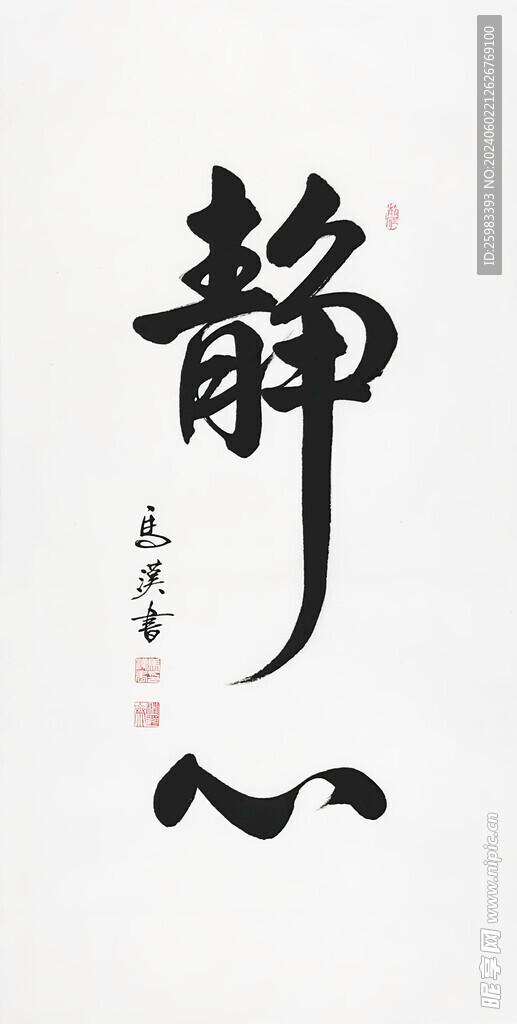 静心
馬漢書
ID:25983393 NO:20240602212626769100
昵享网 www.nipic.cn